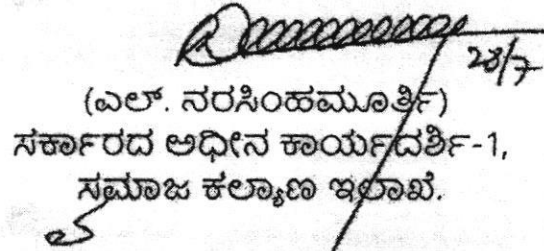 28/7
(ಎಲ್. ನರಸಿಂಹಮೂರ್ತಿ)
ಸರ್ಕಾರದ ಅಧೀನ ಕಾರ್ಯದರ್ಶಿ-1,
ಸಮಾಜ ಕಲ್ಯಾಣ ಇಲಾಖೆ.